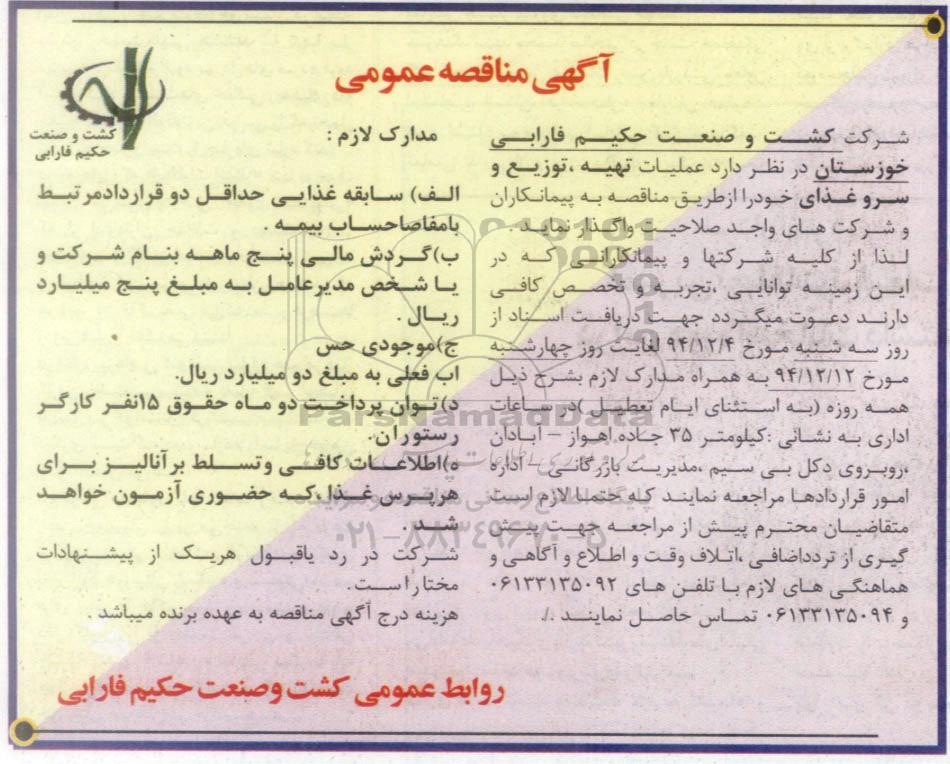 آگهی مناقصه عمومی
کشت و صنعت
حکیم فارابی
شرکت کشت و صنعت حکیم فارابی
خوزستان در نظر دارد عملیات تهیه ،توزیع و
سرو غذای خودرا ازطریق مناقصه به پیمانکاران
و شرکت های واجد صلاحیت واگذار نماید .
لذا از کلیه شرکتها و پیمانکارانی که در
این زمینه توانایی ،تجربه و تخصص کافی
دارند دعوت میگردد جهت دریافت اسناد از
روز سه شنبه مورخ ۹۴/۱۲/۴ لغایت روز چهارشنبه
مورخ ۹۴/۱۲/۱۲ به همراه مدارک لازم بشرح ذیل
همه روزه (به استثنای ایام تعطیل )در ساعات
اداری به نشانی :کیلومتر ۳۵ جاده اهواز – آبادان
،روبروی دکل بی سیم ،مدیریت بازرگانی – اداره
امور قراردادها مراجعه نمایند که حتما لازم است
متقاضیان محترم پیش از مراجعه جهت پیش
گیری از ترددااضافی ،اتلاف وقت و اطلاع و آگاهی و
هماهنگی های لازم با تلفن های ۰۶۱۳۳۱۳۵۰۹۲
و ۰۶۱۳۳۱۳۵۰۹۴ تماس حاصل نمایند ./.
مدارک لازم :
الف) سابقه غذایی حداقل دو قراردادمرتبط
بامفاصاحساب بیمه .
ب)گردش مالی پنج ماهه بنام شرکت و
یا شخص مدیرعامل به مبلغ پنج میلیارد
ریال .
ج)موجودی حس
اب فعلی به مبلغ دو میلیارد ریال.
د)توان پرداخت دو ماه حقوق ۱۵نفر کارگر
رستوران.
ه)اطلاعات کافی وتسلط برآنالیز برای
هرپرس غذا ،که حضوری آزمون خواهد
شد .
شرکت در رد یاقبول هریک از پیشنهادات
مختاراست.
هزینه درج آگهی مناقصه به عهده برنده میباشد .
روابط عمومی کشت وصنعت حکیم فارابی
ParsNamadData
۰۲۱-۸۸۳۴۹۶۷۰-۵